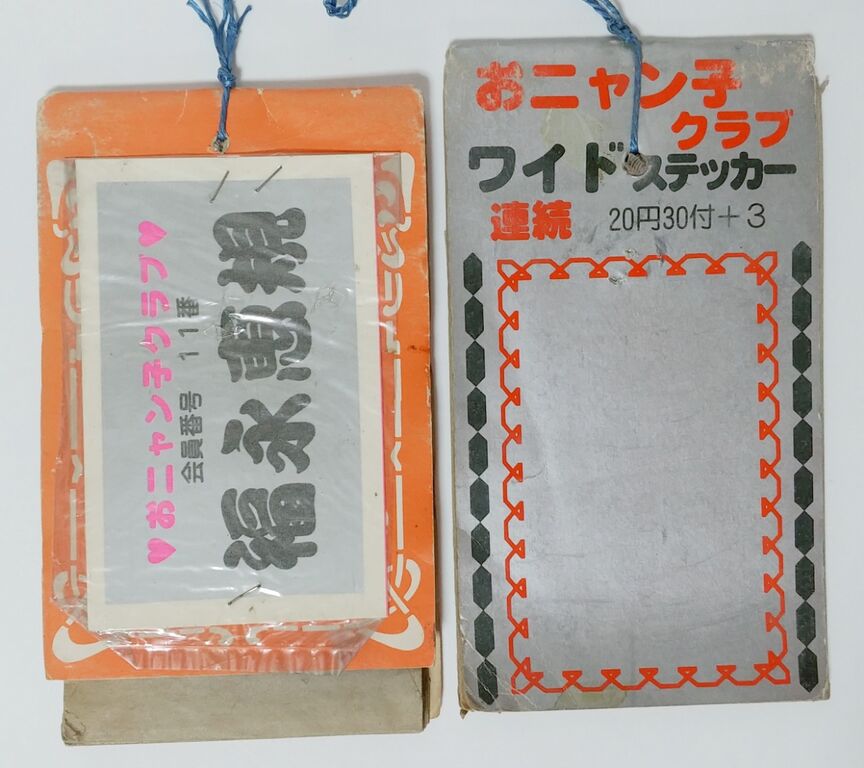 ♥おニャン子クラブ♥
会員番号 11番
福永恵規
おニャン子
クラブ
ワイドステッカー
連続 20円30付+3